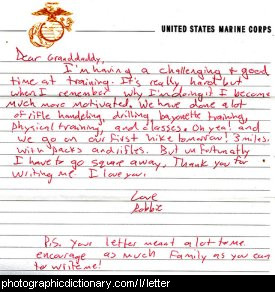 UNITED STATES MARINE CORPS
Dear Granddaddy,
I'm having a challenging & good
time at training. It's really hard but
when I remember why I'm doing it I become
much more motivated. We have done alot
of rifle handeling, drilling, bayonette training,
physical training, and classes. Oh yea! and
we go on our first hike tomorrow! 3 miles
with packs and rifles. But unfortunatly
I have to go square away. Thank you for
writing me! I love you.
Love
Robbie
P.S. Your letter meant a lot to me
encourage as much family as you can
to write me!
photographicdictionary.com/l/letter